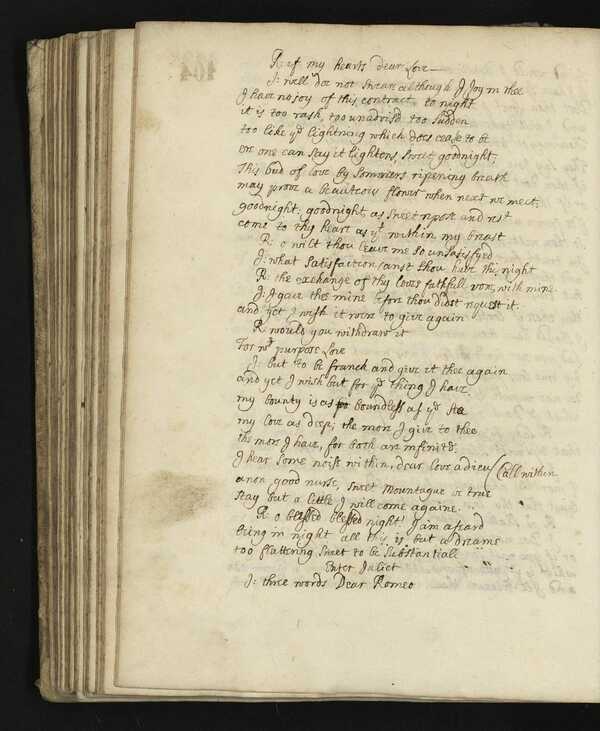 R: if my hearts dear Love
J: well doe not sweare although I Joy in thee
I have no joy of this contract to night
it is too rash, too unadvisd too sudden
too like ye lightning which does cease to be
ere one can say it lightens, sweet goodnight,
This bud of love by Sommers ripening breath
may prove a beauteous flower when next we meet.
goodnight, goodnight, as sweet repose and rest
come to thy heart as yt within my breast
R: o wilt thou leave me so unsatisfyed
J: what satisfaction canst thou have this night
R: the exchange of thy loves faithfull vow, with mine
J: I gave thee mine before thou didst request it.
and yet I wish it were to give again
R: would you withdraw it
For wt purpose Love
J: but to be franck and give it thee again
and yet I wish but for ye thing I have
my bounty is as boundless as ye sea
my love as deep; the more I give to thee
the more I have, for both are infinite.
I hear some noise within, dear love adieu (Call within
anon good nurse, sweet Mountague be true
stay but a little, I will come againe.
R: o blessed blessed night! I am afeard
being in night all this is but a dreame
too flattering sweet to be substantiall
Enter Juliet
J: three words Dear Romeo